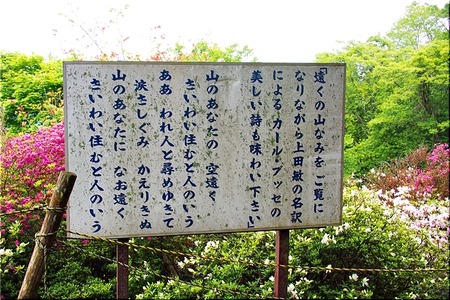 「遠くの山なみをご覧に
なりながら上田敏の名訳
によるカール・ブッセの
美しい詩も味わい下さい」
山のあなたの 空遠く
さいわい住むと人のいう
ああ われ人と尋めゆきて
涙さしぐみ かえりきぬ
山のあなたに なお遠く
さいわい住むと人のいう